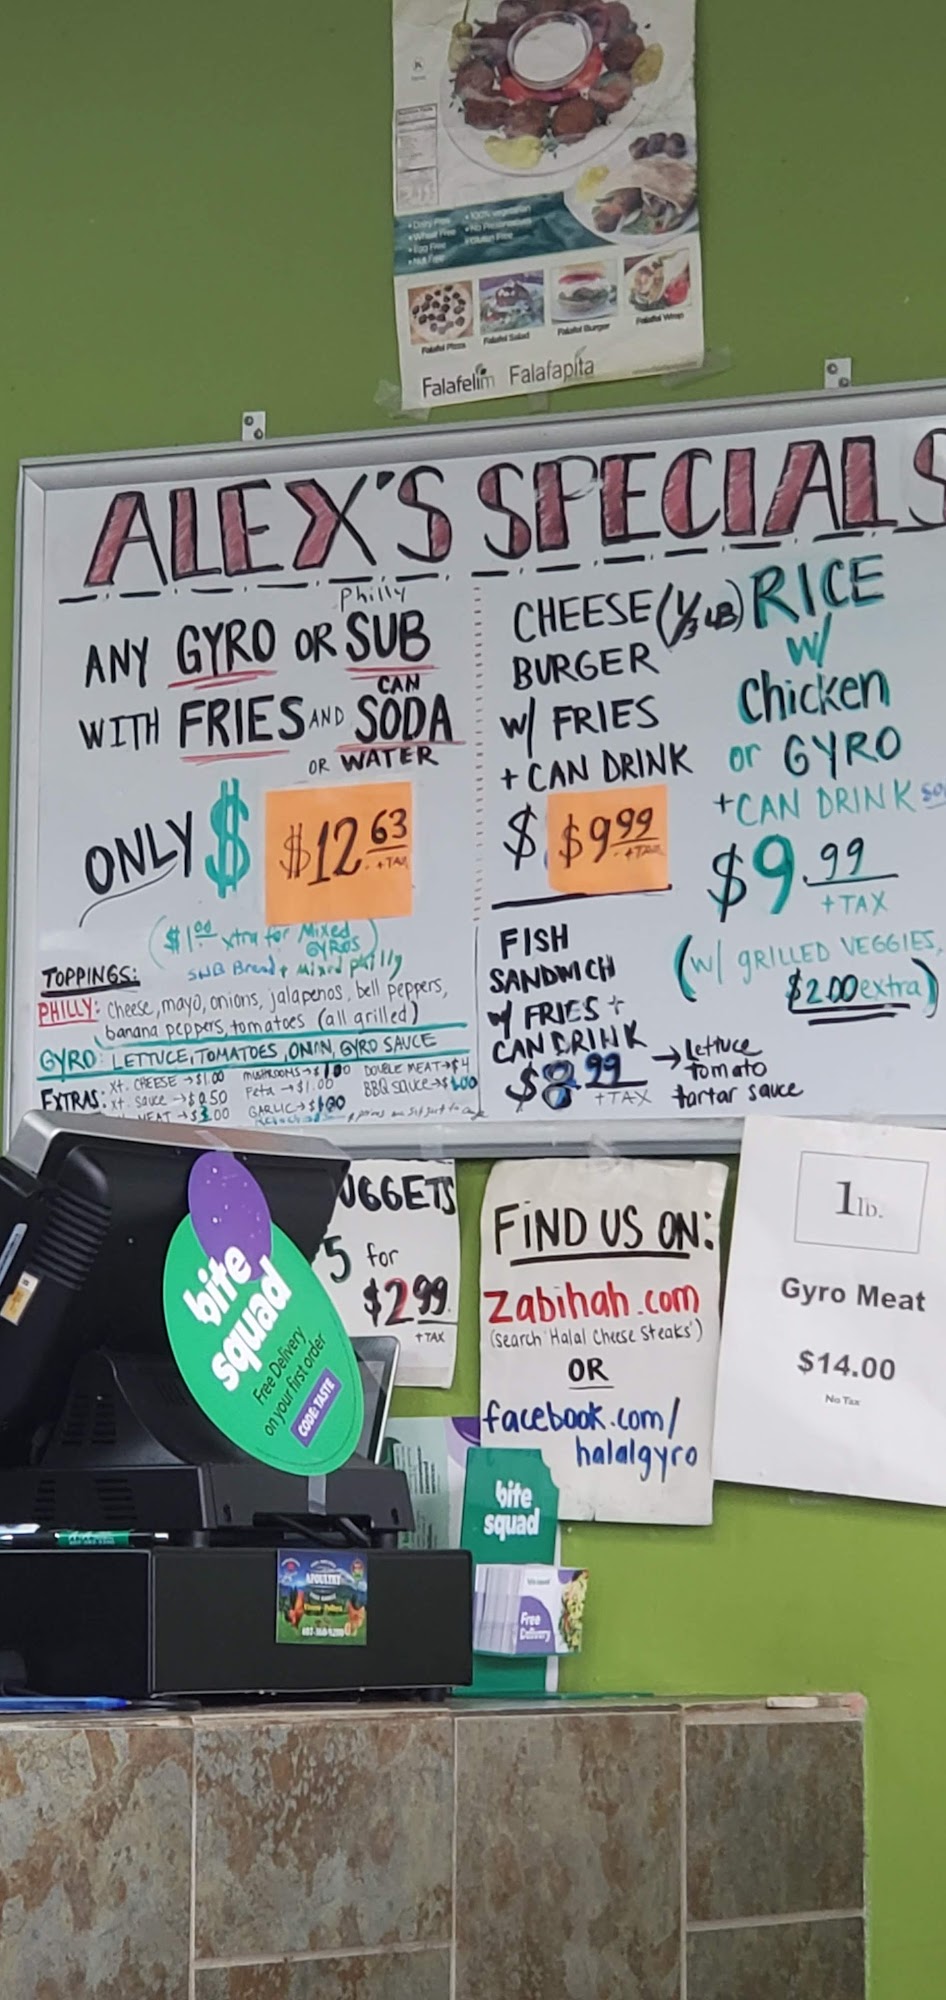 • Dairy Free
• Wheat Free
• Egg Free
• Nut Free
• 100% vegetarian
• No Preservatives
• Gluten Free
Falafel Pizza
Falafel Salad
Falafel Burger
Falafel Wrap
Falafelim Falafapita
ALEX'S SPECIALS
Philly
ANY GYRO OR SUB
CAN
WITH FRIES AND SODA
OR WATER
ONLY $ $12.63
+TAX
($1.00 xtra for Mixed
GYROS)
SUB Bread + Mixed philly
TOPPINGS:
PHILLY: cheese, mayo, onions, jalapenos, bell peppers,
banana peppers, tomatoes (all grilled)
GYRO: LETTUCE, TOMATOES, ONION, GYRO SAUCE
EXTRAS: xt. CHEESE → $1.00
xt. sauce → $0.50
MEAT → $3.00
MUSHROOMS → $1.00
Feta → $1.00
GARLIC → $1.00
DOUBLE MEAT → $4
BBQ SAUCE → $1.00
CHEESE (1/3 LB)
BURGER
W/ FRIES
+ CAN DRINK
$ $9.99
+TAX
FISH
SANDWICH
W/ FRIES +
CAN DRINK
$8.99
+TAX
→ lettuce
tomato
tartar sauce
RICE
W/
Chicken
or GYRO
+CAN DRINK
$9.99
+TAX
(w/ GRILLED VEGGIES,
$2.00 extra)
UGGETS
5 for
$2.99
+TAX
FIND US ON:
zabihah.com
(search 'Halal Cheese Steaks')
OR
facebook.com/
halalgyro
1 lb.
Gyro Meat
$14.00
No Tax
bite
squad
Free Delivery
on your first order
CODE: TASTE
bite
squad
Free
Delivery
APOULTRY